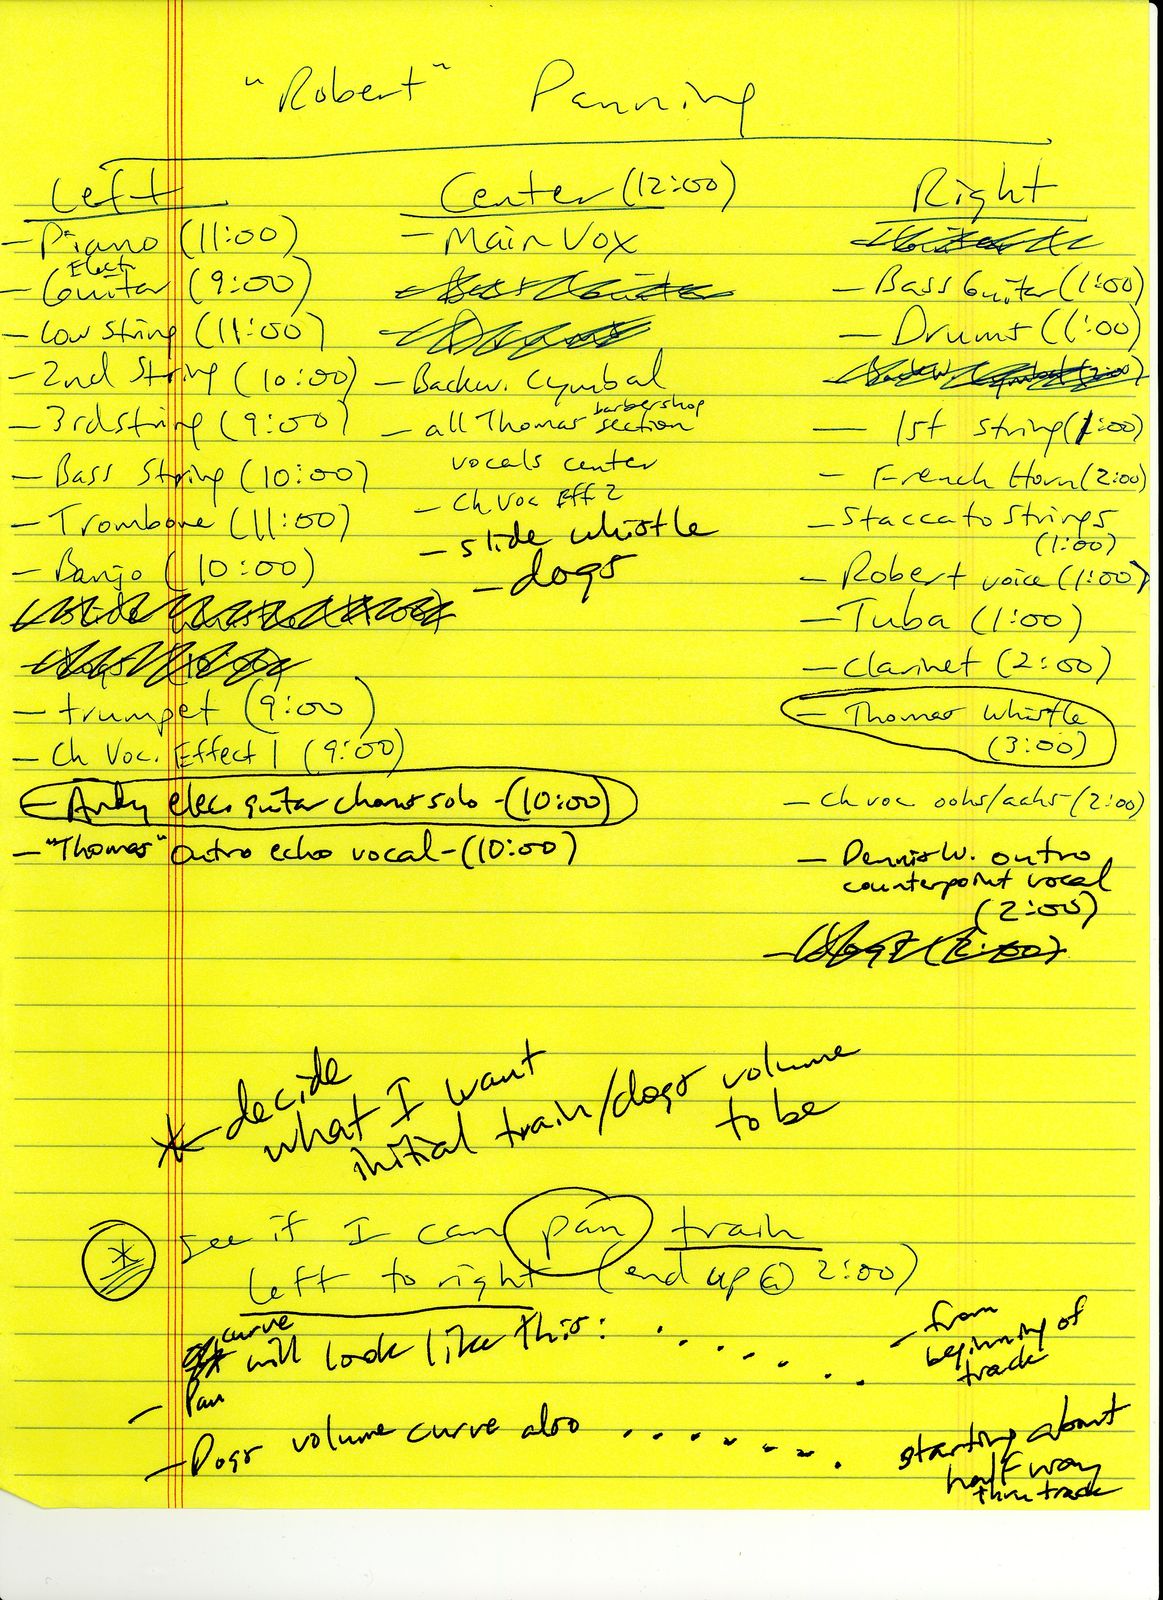 "Robert" Panning
Left
- Piano (11:00)
- Elect. Guitar (9:00)
- Low String (11:00)
- 2nd String (10:00)
- 3rd string (9:00)
- Bass String (10:00)
- Trombone (11:00)
- Banjo (10:00)
- trumpet (9:00)
- Ch Voc. Effect 1 (9:00)
- Andy elec. guitar chorus solo - (10:00)
- "Thomas" outro echo vocal - (10:00)
Center (12:00)
- Main Vox
- Backw. Cymbal
- all Thomas barbershop section
vocals center
- Ch Voc Eff 2
- slide whistle
- dogs
Right
- Bass Guitar (1:00)
- Drums (1:00)
- 1st string (1:00)
- French Horn (2:00)
- Staccato Strings
(1:00)
- Robert voice (1:00)
- Tuba (1:00)
- Clarinet (2:00)
- Thomas whistle
(3:00)
- Ch voc oohs/aahs - (2:00)
- Dennis W. outro
counterpoint vocal
(2:00)
* decide
what I want
initial train/dogs volume
to be
* see if I can pan train
left to right (end up @ 2:00)
curve
will look like this:
- from
beginning of
track
- Pan
- Dogs volume curve also
starting about
halfway
thru track